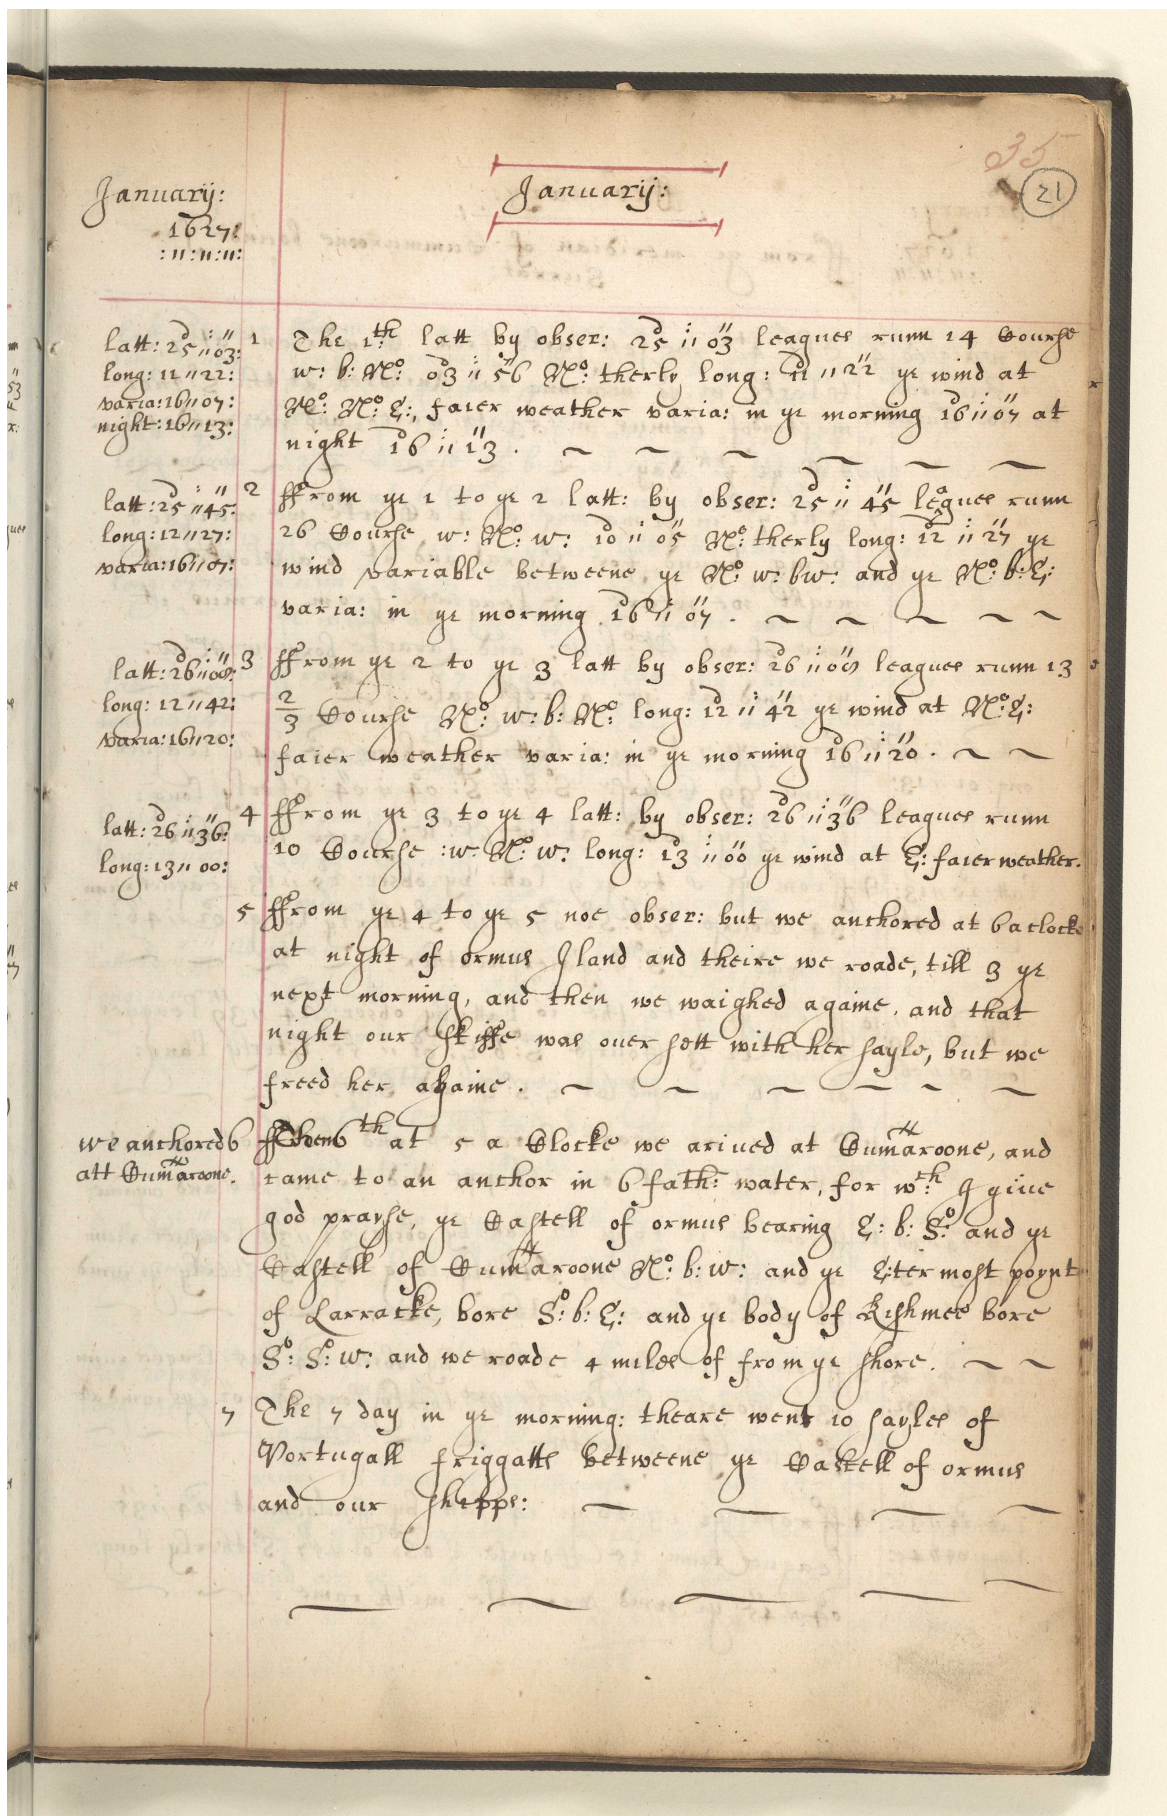 35
21
Januarij:
1627:
:11:11:11:
Januarij:
latt: 25 11 03:
long: 11 11 22:
varia: 16 11 07:
night: 16 11 13:
1 The 1th latt by obser: 25 11 03 leagues runn 14 Course
w: b: No: 03 11 56 No: therly long: 11 11 22 ye wind at
No: No: E:, faier weather varia: in ye morning 16 11 07 at
night 16 11 13.
latt: 25 11 45:
long: 12 11 27:
varia: 16 11 07:
2 ffrom ye 1 to ye 2 latt: by obser: 25 11 45 leagues runn
26 Course w: No: w: 10 11 05 No: therly long: 12 11 27 ye
wind variable betweene ye No: w: bw: and ye No: b: E:
varia: in ye morning 16 11 07.
latt: 26 11 00:
long: 12 11 42:
varia: 16 11 20:
3 ffrom ye 2 to ye 3 latt by obser: 26 11 00 leagues runn 13
2/3 Course No: w: b: No: long: 12 11 42 ye wind at No: E:
faier weather varia: in ye morning 16 11 20.
latt: 26 11 36:
long: 13 11 00:
4 ffrom ye 3 to ye 4 latt: by obser: 26 11 36 leagues runn
10 Course :w: No: w: long: 13 11 00 ye wind at E: faier weather.
5 ffrom ye 4 to ye 5 noe obser: but we anchored at 6 a clocke
at night of ormus Iland and theire we roade, till 3 ye
next morning, and then we waighed againe, and that
night our skiffe was ouer sett with her sayle, but we
freed her againe.
we anchored
att Gumaroone.
6 6th at 5 a Clocke we ariued at Gumaroone, and
came to an anchor in 6 fath: water, for wch: I giue
god prayse, ye Castell of ormus bearing E: b: So: and ye
Castell of Gumaroone No: b: w: and ye E:ter most poynt
of Larracke, bore So: b: E: and ye body of Kishmee bore
So: So: w: and we roade 4 miles of from ye shore.
7 The 7 day in ye morning: theare went 10 sayles of
Portugall friggatts betweene ye Castell of ormus
and our shipps: